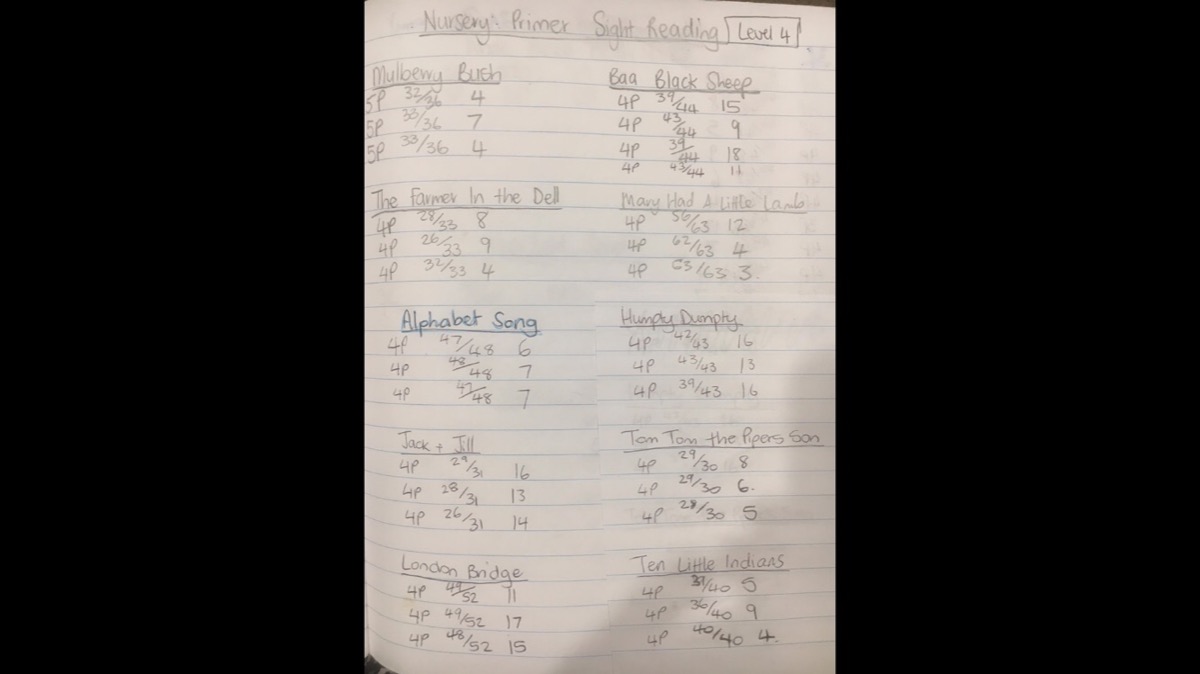 Nursery: Primer Sight Reading Level 4
Mulberry Bush
5P 32/36 4
5P 33/36 7
5P 33/36 4
The Farmer In the Dell
4P 28/33 8
4P 26/33 9
4P 32/33 4
Alphabet Song
4P 47/48 6
4P 48/48 7
4P 47/48 7
Jack + Jill
4P 29/31 16
4P 28/31 13
4P 26/31 14
London Bridge
4P 49/52 11
4P 49/52 17
4P 48/52 15
Baa Black Sheep
4P 39/44 15
4P 43/44 9
4P 39/44 18
4P 43/44 11
Mary Had A Little Lamb
4P 56/63 12
4P 62/63 4
4P 63/63 3.
Humpty Dumpty
4P 42/43 16
4P 43/43 13
4P 39/43 16
Tom Tom the Pipers Son
4P 29/30 8
4P 29/30 6.
4P 28/30 5
Ten Little Indians
4P 39/40 5
4P 36/40 9
4P 40/40 4.